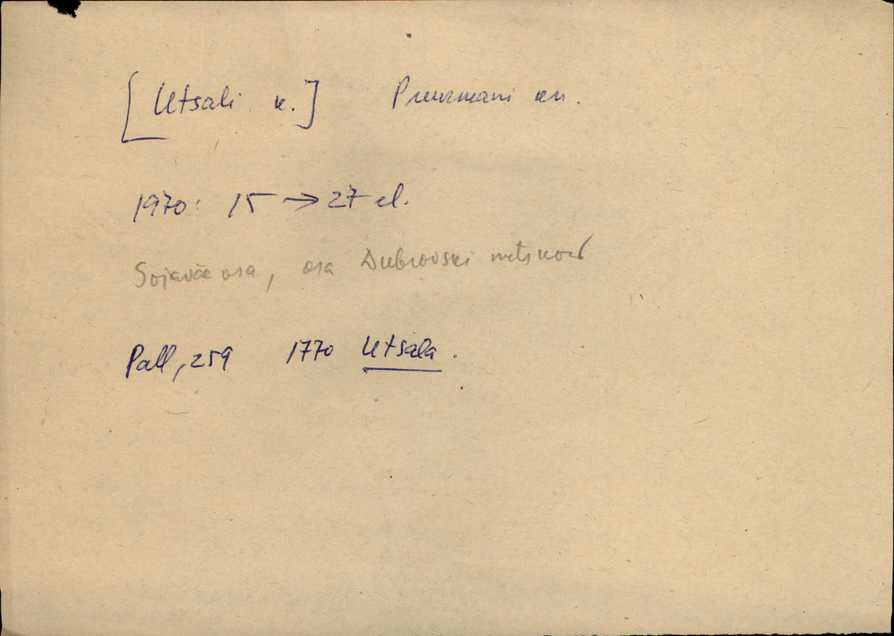 [Utsali k.] Pruuzmani kn.
1970: 15 → 27 el.
Sojaväe osa, osa Dubrovski metskond
Pall, 259 1770 Utsala.